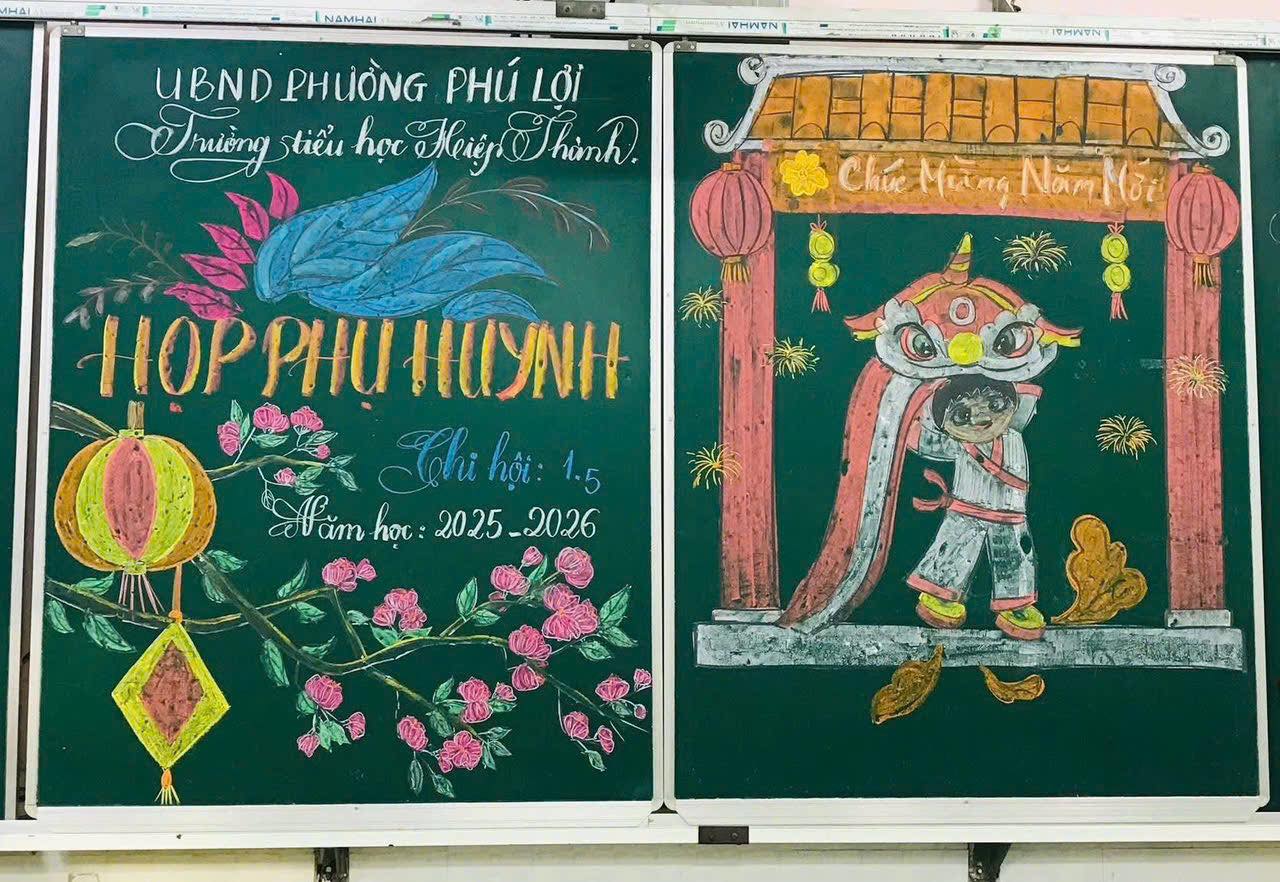 NAMHAI
NAMHAI
NAMHAI
NAMHAI
UBND PHƯỜNG PHÚ LỢI
Trường tiểu học Hiệp Thành.
HỌP PHỤ HUYNH
Chi hội: 1.5
Năm học: 2025-2026
Chúc Mừng Năm Mới